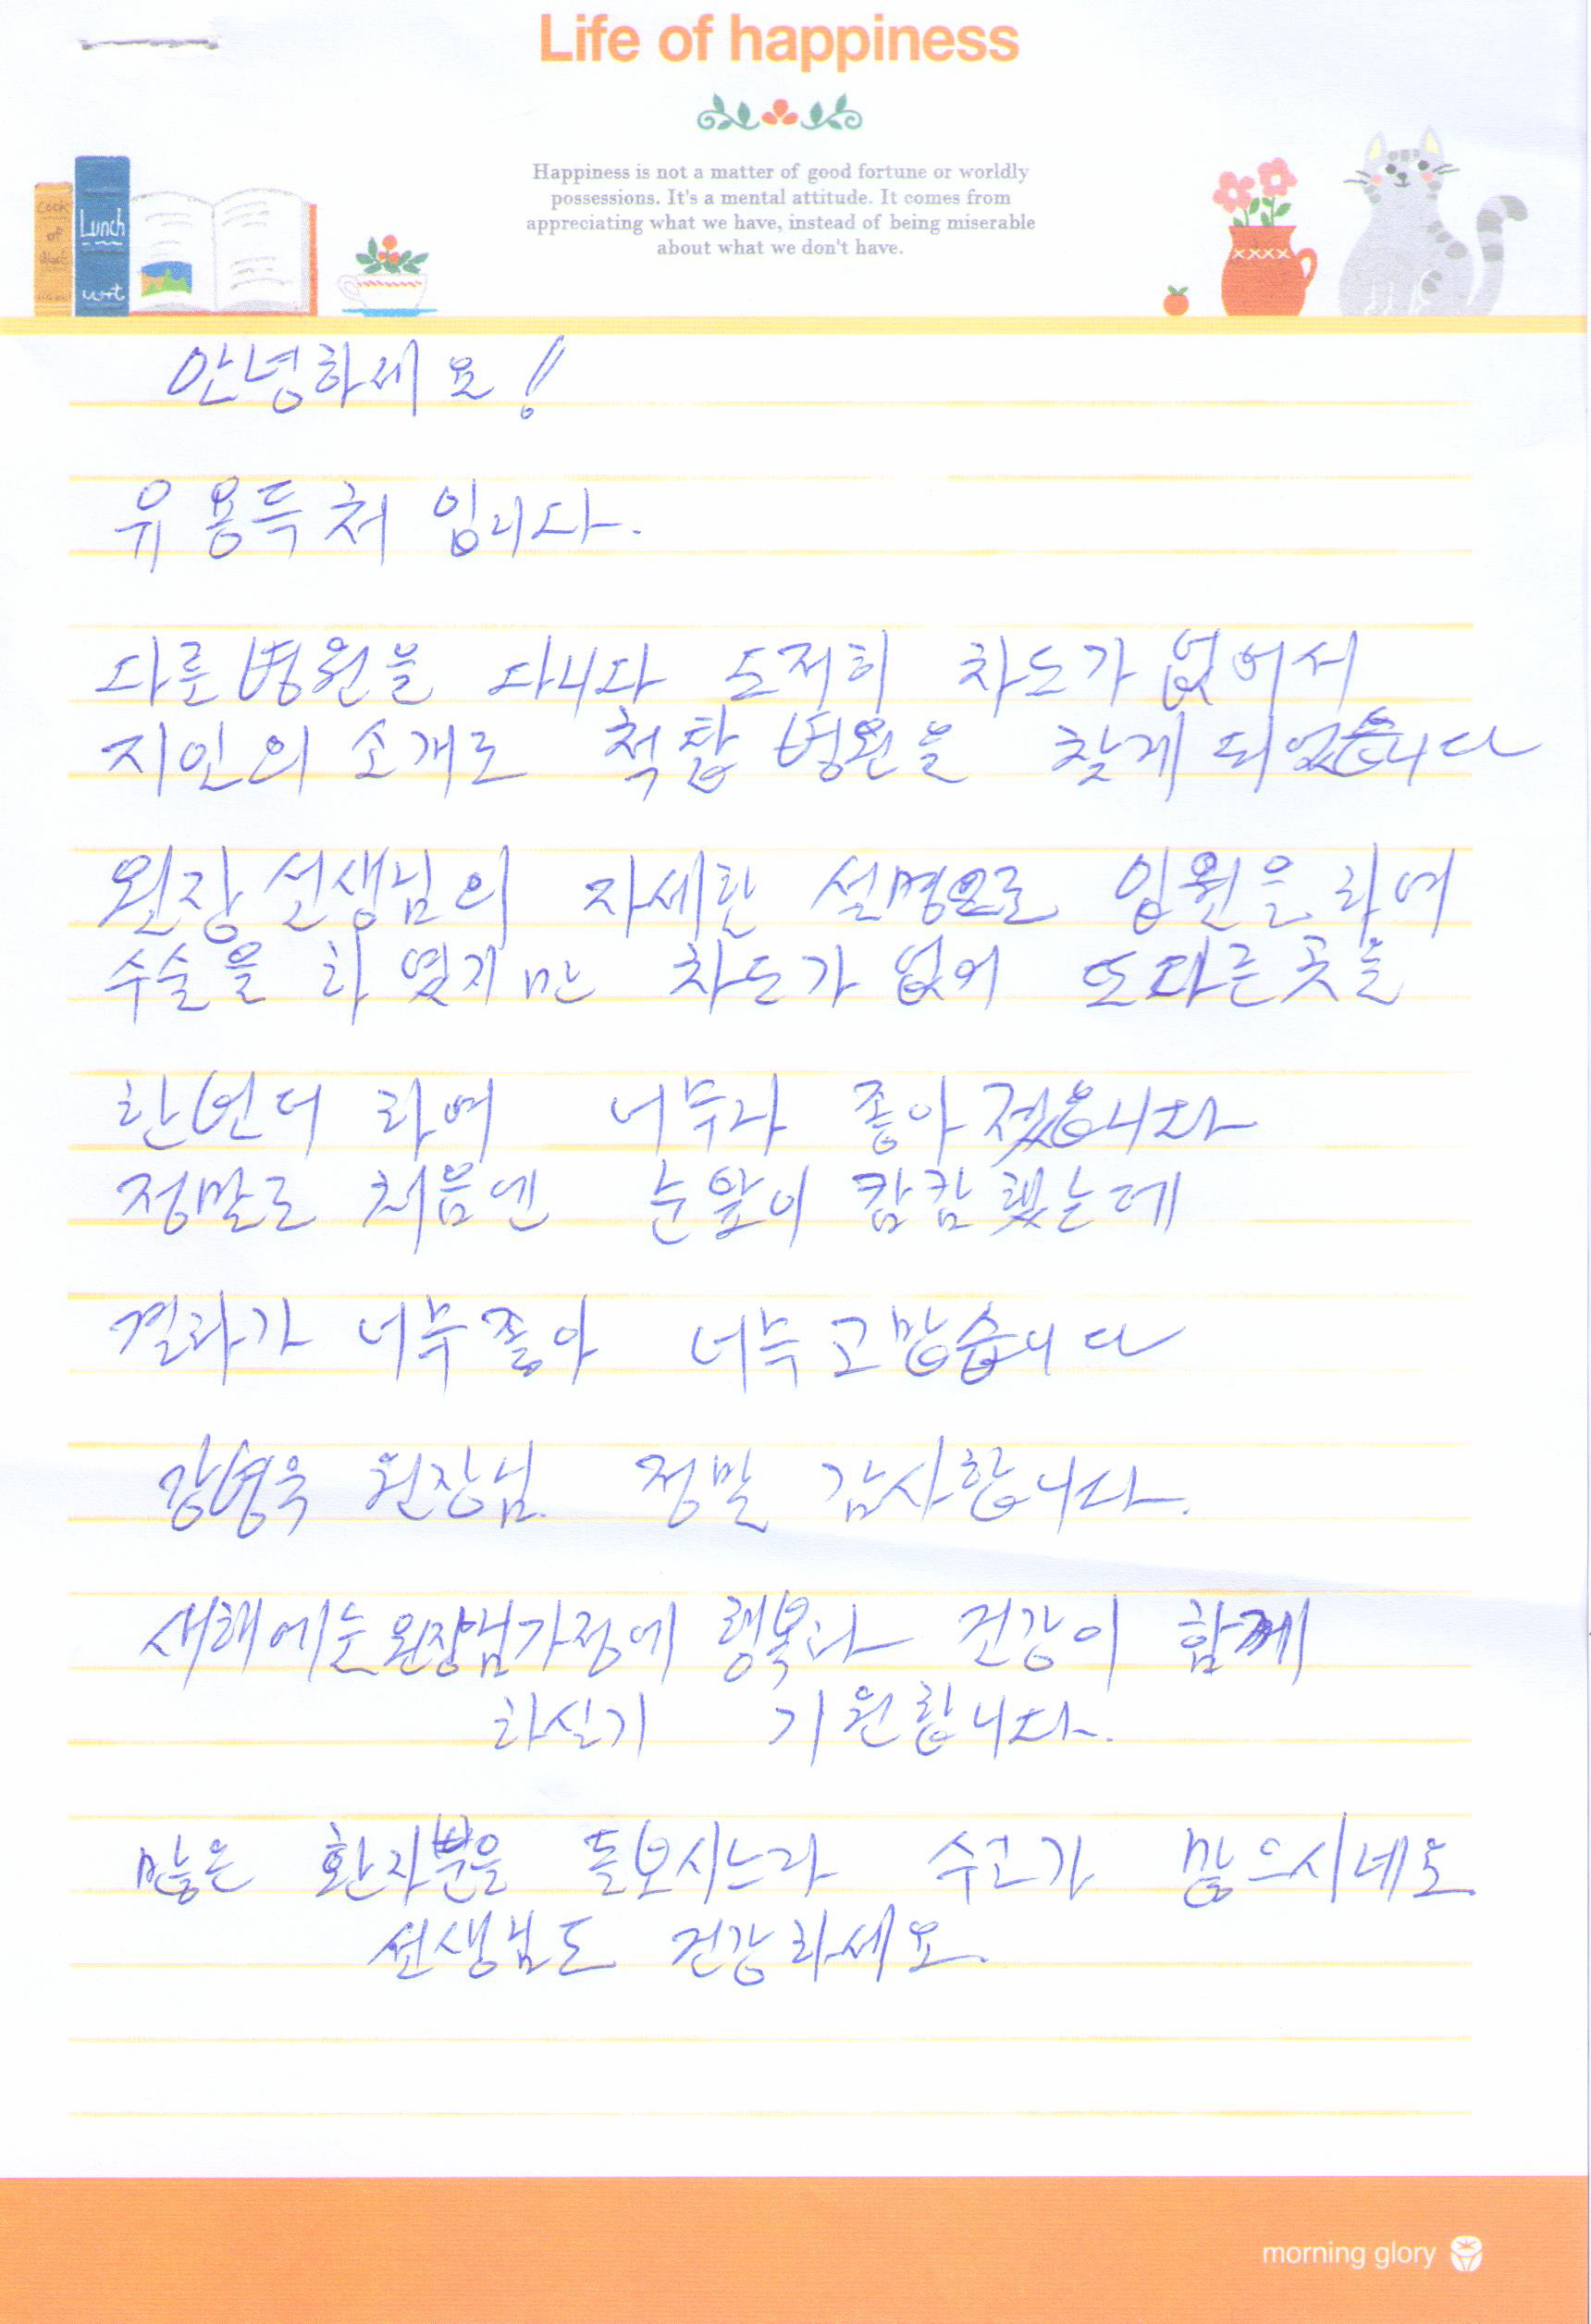 Life of happiness
Happiness is not a matter of good fortune or worldly
possessions. It's a mental attitude. It comes from
appreciating what we have, instead of being miserable
about what we don't have.
Cook
of
Lunch
안녕하세요!
유용득처 입니다.
다른병원을 다니다 도저히 차도가 없어서
지인의 소개로 척탑 병원을 찾게 되었습니다
원장 선생님의 자세한 설명으로 입원을 하여
수술을 하였지만 차도가 없어 또다른곳을
한번더 하여 너무나 좋아졌읍니다
정말로 처음엔 눈앞이 캄캄했는데
결과가 너무좋아 너무고맙습니다
강형욱 원장님. 정말 감사합니다.
새해에는원장님가정에 행복과 건강이 함께
하실기 기원합니다.
많은 환자분을 돌보시느라 수고가 많으시네요
선생님도 건강하세요.
morning glory